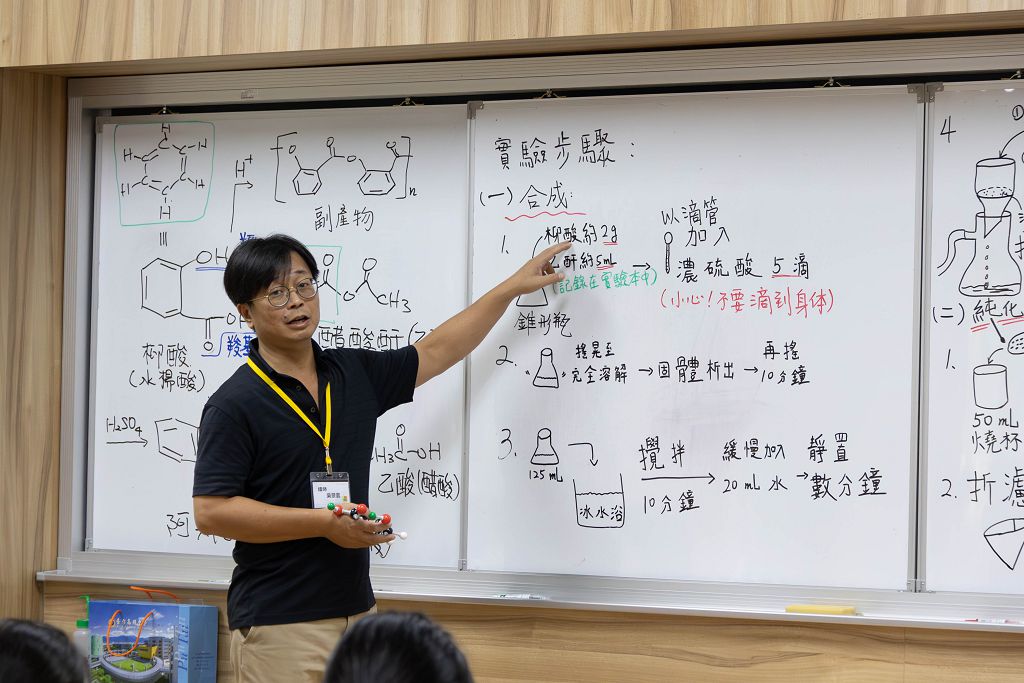 H H H H H H
H⁺
O O O O
n
副產物
OH
O
羧基
柳酸
(水楊酸)
O O
O CH3
醋酸酐
H2SO4
O
CH3C-OH
乙酸(醋酸)
講師
實驗步驟:
(一)合成:
1.
柳酸約2g
酐約5mL
(記錄在實驗本中)
錐形瓶
以滴管
加入
濃硫酸 5滴
(小心!不要滴到身體)
2.
搖晃至
完全溶解
固體析出
再搖
10分鐘
3.
125 mL
冰水浴
攪拌
10分鐘
緩慢加入
20 mL 水
靜置
數分鐘
4
①
(二)純化
1.
50 mL
燒杯
2. 折濾